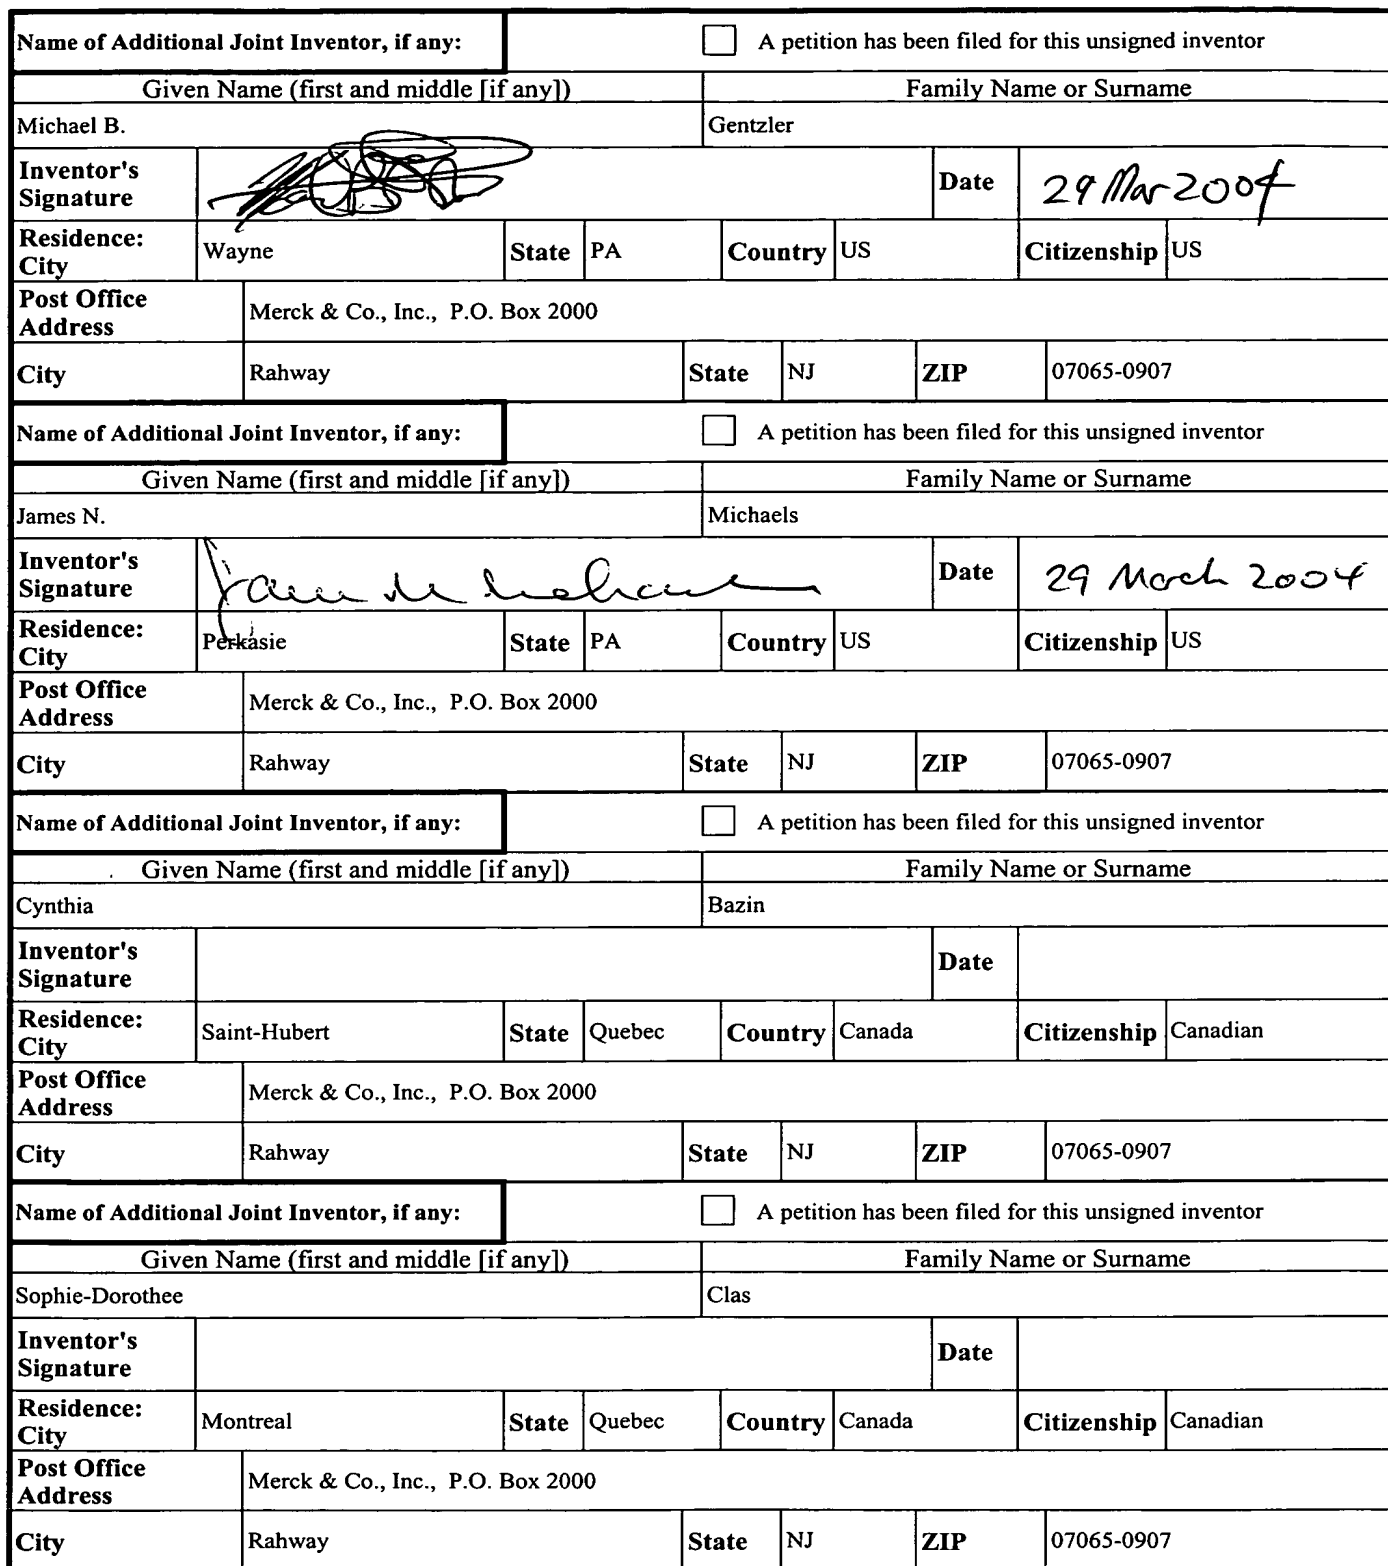 Name of Additional Joint Inventor, if any: A petition has been filed for this unsigned inventor
Given Name (first and middle [if any]) Family Name or Surname
Michael B. Gentzler
Inventor's Signature Date 29 Mar 2004
Residence: City Wayne State PA Country US Citizenship US
Post Office Address Merck & Co., Inc., P.O. Box 2000
City Rahway State NJ ZIP 07065-0907
Name of Additional Joint Inventor, if any: A petition has been filed for this unsigned inventor
Given Name (first and middle [if any]) Family Name or Surname
James N. Michaels
Inventor's Signature Date 29 March 2004
Residence: City Perkasie State PA Country US Citizenship US
Post Office Address Merck & Co., Inc., P.O. Box 2000
City Rahway State NJ ZIP 07065-0907
Name of Additional Joint Inventor, if any: A petition has been filed for this unsigned inventor
Given Name (first and middle [if any]) Family Name or Surname
Cynthia Bazin
Inventor's Signature Date
Residence: City Saint-Hubert State Quebec Country Canada Citizenship Canadian
Post Office Address Merck & Co., Inc., P.O. Box 2000
City Rahway State NJ ZIP 07065-0907
Name of Additional Joint Inventor, if any: A petition has been filed for this unsigned inventor
Given Name (first and middle [if any]) Family Name or Surname
Sophie-Dorothee Clas
Inventor's Signature Date
Residence: City Montreal State Quebec Country Canada Citizenship Canadian
Post Office Address Merck & Co., Inc., P.O. Box 2000
City Rahway State NJ ZIP 07065-0907